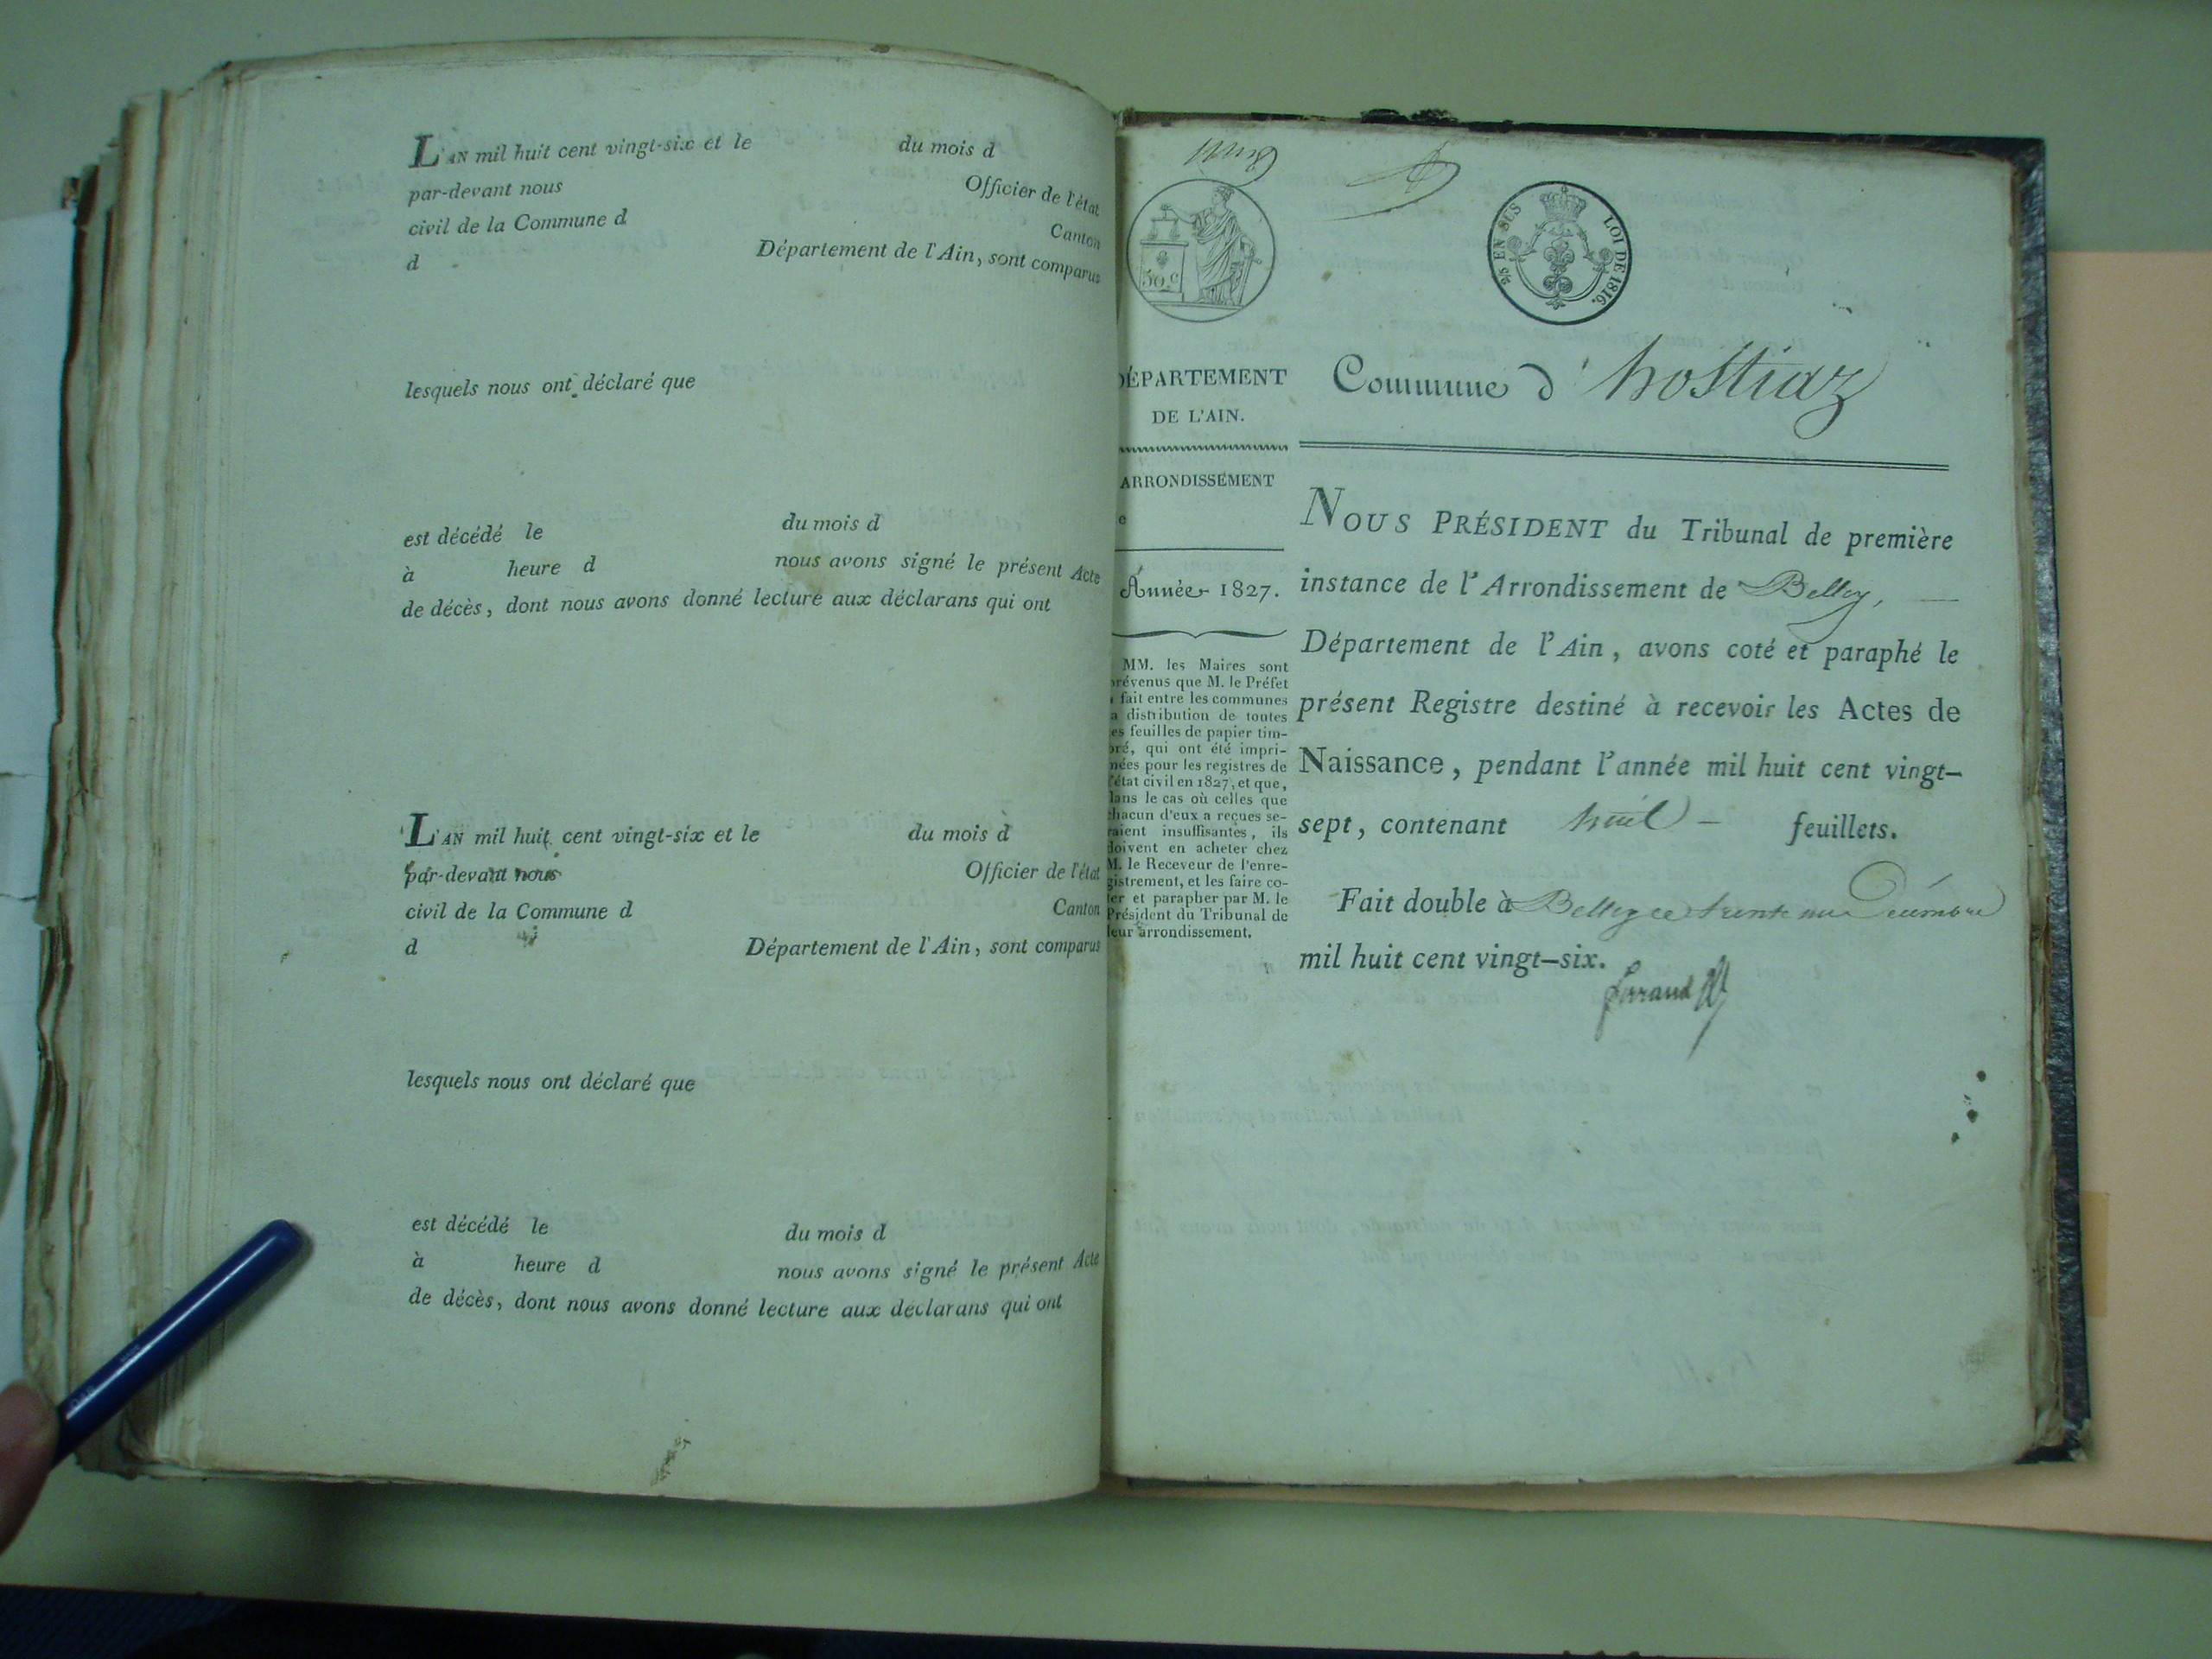 L'AN mil huit cent vingt-six et le du mois d
par-devant nous Officier de l'état
civil de la Commune d Canton
d Département de l'Ain, sont comparus
lesquels nous ont déclaré que
est décédé le du mois d
à heure d nous avons signé le présent Acte
de décès, dont nous avons donné lecture aux déclarans qui ont
L'AN mil huit cent vingt-six et le du mois d
par-devant nous Officier de l'état
civil de la Commune d Canton
d Département de l'Ain, sont comparus
lesquels nous ont déclaré que
est décédé le du mois d
à heure d nous avons signé le présent Acte
de décès, dont nous avons donné lecture aux déclarans qui ont
50.c
EN SUS LOI DE 1816.
DÉPARTEMENT
DE L'AIN.
ARRONDISSEMENT
e
Année 1827.
MM. les Maires sont
prévenus que M. le Préfet
a fait entre les communes
la distribution de toutes
les feuilles de papier tim-
bré, qui ont été impri-
mées pour les registres de
l'état civil en 1827, et que,
dans le cas où celles que
chacun d'eux a reçues se-
raient insuffisantes, ils
doivent en acheter chez
M. le Receveur de l'enre-
gistrement, et les faire co-
ter et parapher par M. le
Président du Tribunal de
leur arrondissement.
Commune d'hostiaz
NOUS PRÉSIDENT du Tribunal de première
instance de l'Arrondissement de Belley,
Département de l'Ain, avons coté et paraphé le
présent Registre destiné à recevoir les Actes de
Naissance, pendant l'année mil huit cent vingt-
sept, contenant huit feuillets.
Fait double à Belley ce trente un Décembre
mil huit cent vingt-six.